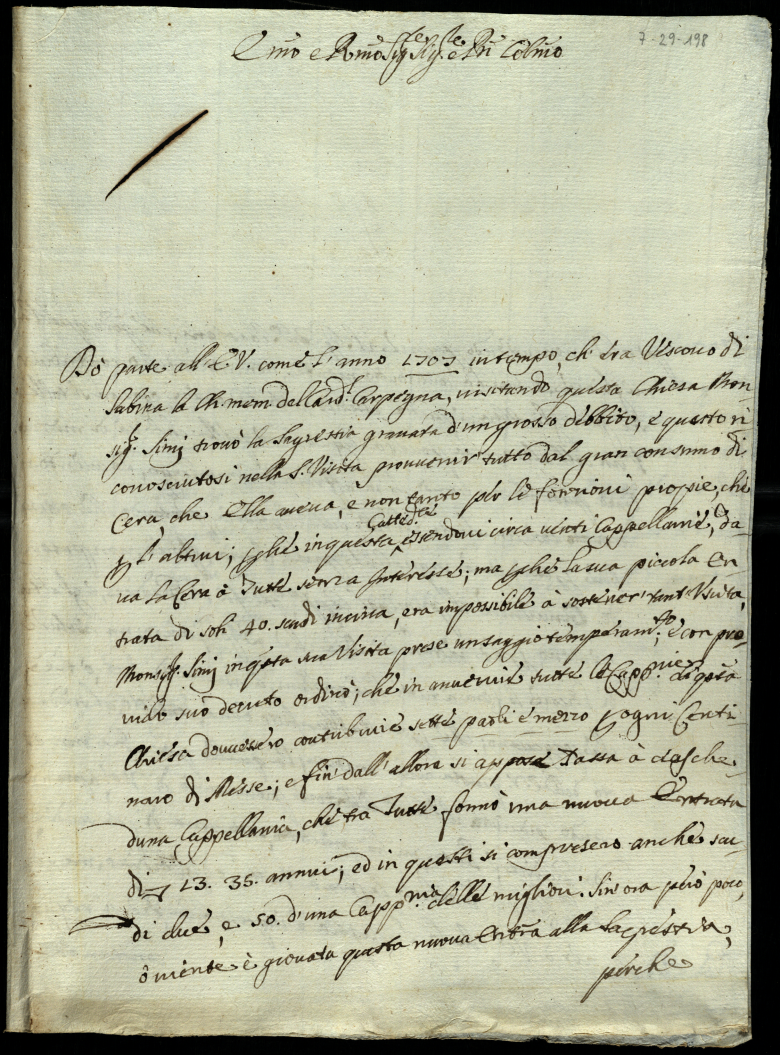 7-29-198
Emo e Rmo Sig.re Sig.re e Pñ Colmo
Dò parte all'E.V. come l'anno 1707 in tempo, ch'era Vescovo di
Sabina la Ch. mem. del Card. Carpegna, visitando questa Chiesa Mon-
sig.r Simj trovò la Sagrestia gravata d'un grosso debbito, e questo ri
conosciutosi nella S. Visita provvenir tutto dal gran consumo di
Cera, che Ella aveva, e non tanto per le fonzioni propie, che
p l'altrui; pche in questa Catted.le essendovi circa venti Cappellanie, da-
va la Cera à Tutte senza Interesse; ma pche la sua piccola En
trata di soli 40. scudi incirca, era impossibile à sostener tant'Uscita,
Monsig.r Simj in qsta sua Visita prese un saggio temperam.to, e con pro-
vido suo decreto ordinò; che in avvenire tutte le Capp.nie di qsta
Chiesa dovessero contribuire sette paoli e mezzo p ogni Centi-
naro di Messe; e fin dall'allora si appose Tassa à clasche
duna Cappellania, che frà Tutte formò una nuova Entrata
di 13. 35. annui; ed in questi si compresero anche scu-
di due, e 50. d'una Capp.nia delle migliori. Sin ora però poco,
ò niente è giovata questa nuova Entrã alla Sagrestia,
perche